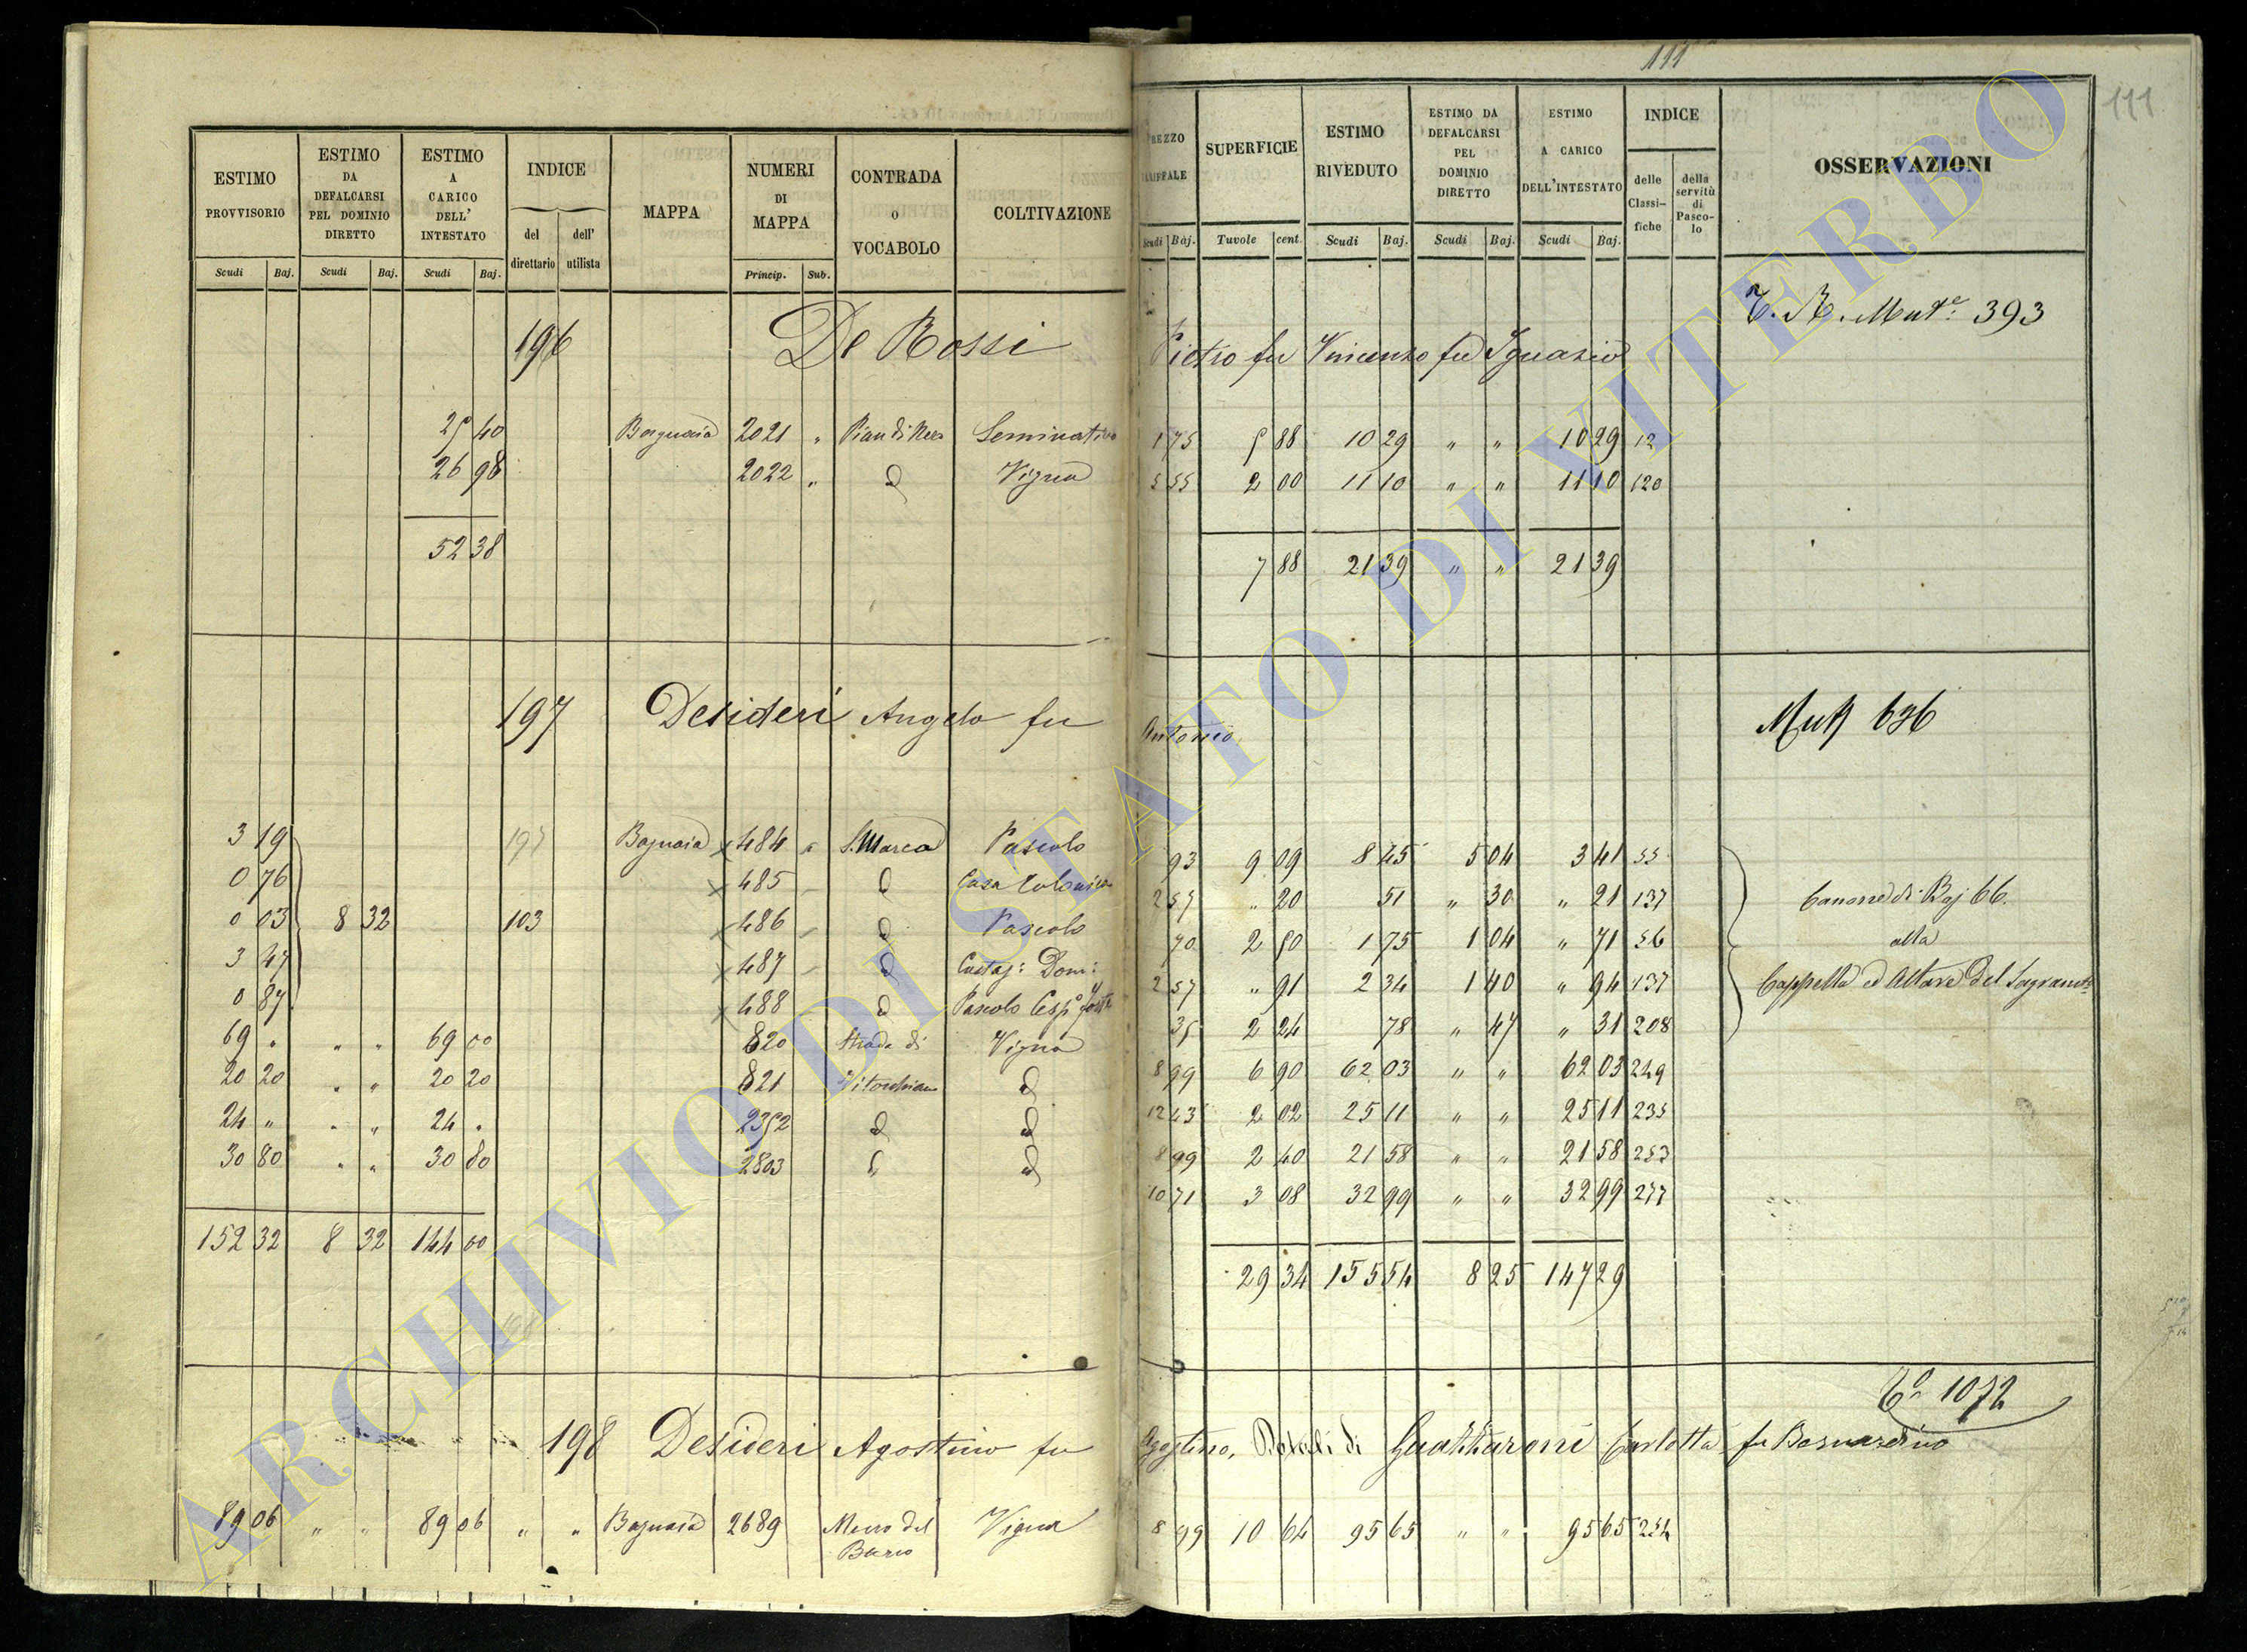 111
111
ESTIMO PROVVISORIO | ESTIMO DA DEFALCARSI PEL DOMINIO DIRETTO | ESTIMO A CARICO DELL' INTESTATO | INDICE | MAPPA | NUMERI DI MAPPA | CONTRADA o VOCABOLO | COLTIVAZIONE
del direttario | dell' utilista
Scudi | Baj. | Scudi | Baj. | Scudi | Baj. | Princip. | Sub.
PREZZO TARIFFALE | SUPERFICIE | ESTIMO RIVEDUTO | ESTIMO DA DEFALCARSI PEL DOMINIO DIRETTO | ESTIMO A CARICO DELL'INTESTATO | INDICE | OSSERVAZIONI
delle Classifiche | della servitù di Pascolo
Scudi | Baj. | Tavole | cent. | Scudi | Baj. | Scudi | Baj. | Scudi | Baj.
393
196 De Rossi Pietro fu Vincenzo fu Ignazio
25 40 Bagnaia 2021 " Seminativo 1 75 5 88 10 29 " " 10 29 12
26 98 2022 " d Vigna 5 55 2 00 11 10 " " 11 10 120
52 38 7 88 21 39 " " 21 39
197 Desideri Angelo fu Antonio
636
3 19 197 Bagnaia × 484 " S. Marco Pascolo 93 9 09 8 45 5 04 3 41 55
0 76 × 485 d Casa Colonica 2 57 " 20 51 " 30 " 21 137 Canone di Baj 66.
0 03 8 32 103 × 486 d Pascolo 70 2 50 1 75 1 04 " 71 56 alla
3 47 × 487 d Castag: Dom: 2 57 " 91 2 34 1 40 " 94 137 Cappella ed Altare del
0 87 × 488 d Pascolo Cesp° 35 2 24 78 " 47 " 31 208
69 " " " 69 00 820 Strada di Vigna 8 99 6 90 62 03 " " 62 03 249
20 20 " " 20 20 821 Vitorchiano d 12 43 2 02 25 11 " " 25 11 235
24 " " " 24 " 2352 d d 8 99 2 40 21 58 " " 21 58 253
30 80 " " 30 80 2803 d 10 71 3 08 32 99 " " 32 99 277
152 32 8 32 144 00 29 34 155 54 8 25 147 29
1072
198 Desideri Agostino fu Agostino, di Guattaroni Carlotta fu Bernardino
89 06 " " 89 06 " " Bagnaia 2689 Muro del Barco Vigna 8 99 10 64 95 65 " " 95 65 254
ARCHIVIO DI STATO DI VITERBO